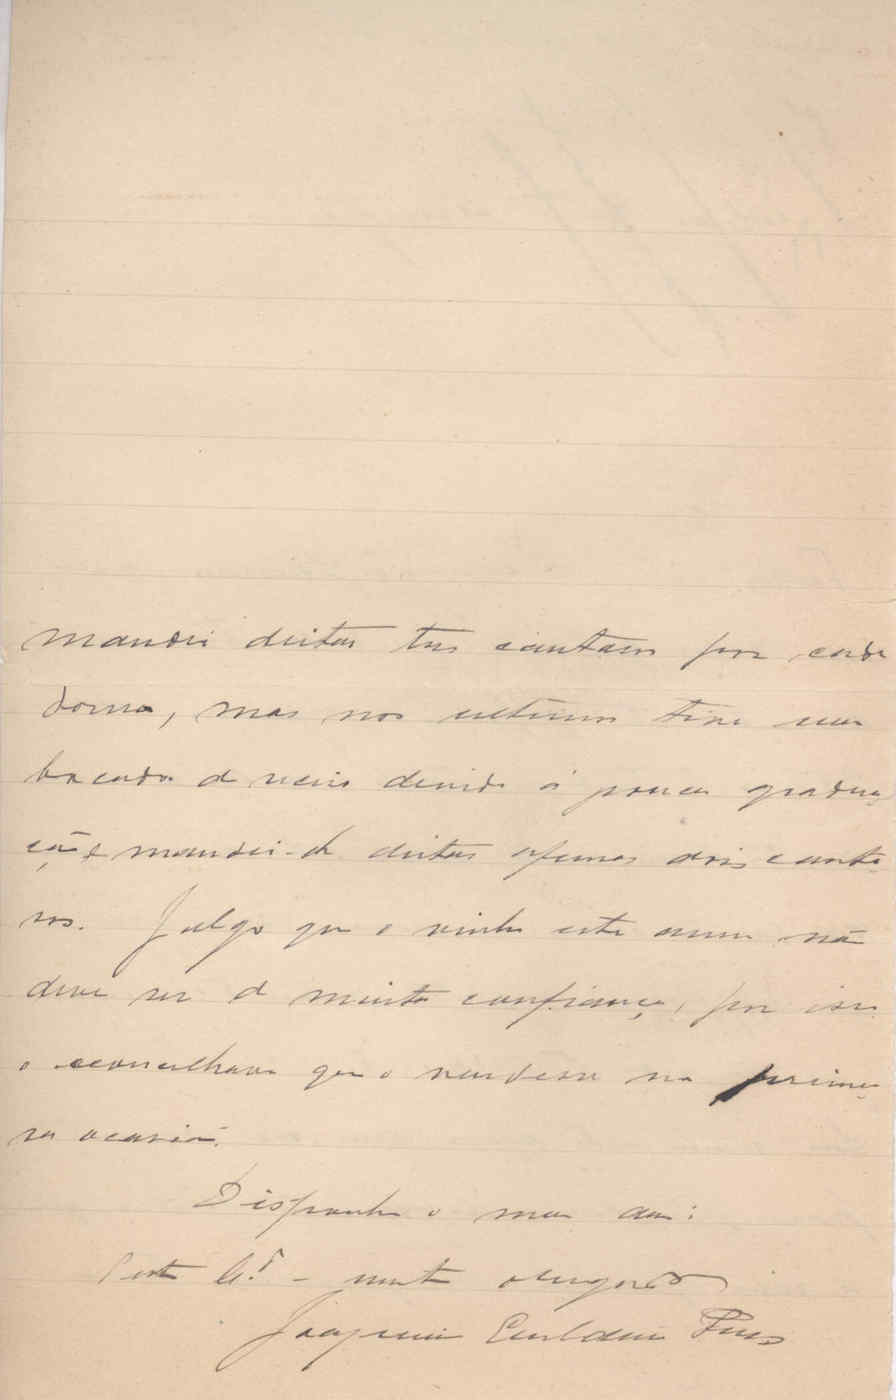 mandei deitar tres cantaros por cada
dorna, mas nos ultimos tive um
bocado de receio devido á pouca gradua
ção e mandei-lh deitar apenas dois canta
ros. Julgo que o vinho este anno não
deve ser de muita confiança, por isso
o aconselhava que o vendesse na primei
ra ocasião.
Disponha o meu am:
muito obrigado
Joaquim